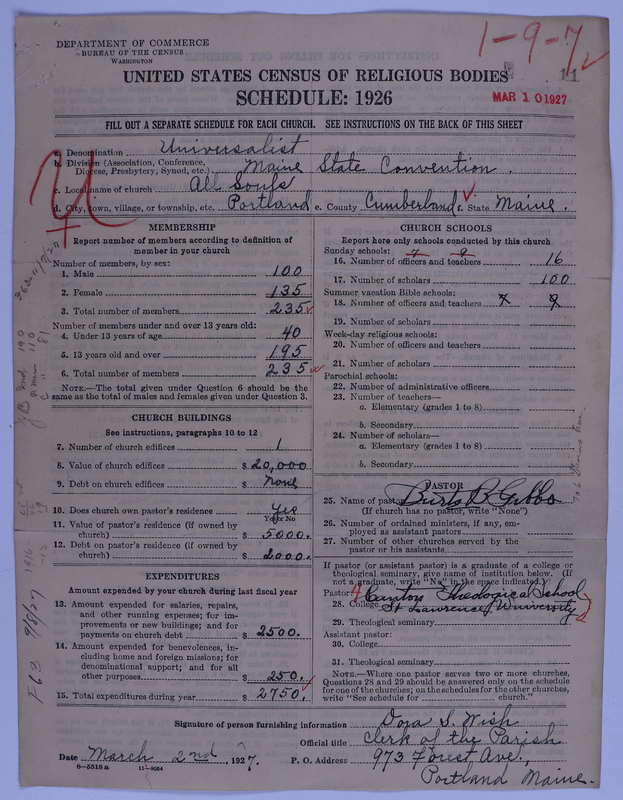 1-9-7
11
DEPARTMENT OF COMMERCE
BUREAU OF THE CENSUS
WASHINGTON
UNITED STATES CENSUS OF RELIGIOUS BODIES
SCHEDULE: 1926
MAR 10 1927
FILL OUT A SEPARATE SCHEDULE FOR EACH CHURCH. SEE INSTRUCTIONS ON THE BACK OF THIS SHEET
a. Denomination Universalist
b. Division (Association, Conference, Diocese, Presbytery, Synod, etc.) Maine State Convention.
c. Local name of church All Souls
d. City, town, village, or township, etc. Portland e. County Cumberland f. State Maine.
MEMBERSHIP
Report number of members according to definition of
member in your church
Number of members, by sex:
1. Male 100
2. Female 135
3. Total number of members 235
Number of members under and over 13 years old:
4. Under 13 years of age 40
5. 13 years old and over 195
6. Total number of members 235
NOTE.—The total given under Question 6 should be the
same as the total of males and females given under Question 3.
CHURCH BUILDINGS
See instructions, paragraphs 10 to 12
7. Number of church edifices 1
8. Value of church edifices $ 20,000
9. Debt on church edifices $ none
10. Does church own pastor's residence yes
Yes or No
11. Value of pastor's residence (if owned by
church) $ 5000.
12. Debt on pastor's residence (if owned by
church) $ 2000.
EXPENDITURES
Amount expended by your church during last fiscal year
13. Amount expended for salaries, repairs,
and other running expenses; for im-
provements or new buildings; and for
payments on church debt $ 2500.
14. Amount expended for benevolences, in-
cluding home and foreign missions; for
denominational support; and for all
other purposes $ 250.
15. Total expenditures during year $ 2750.
CHURCH SCHOOLS
Report here only schools conducted by this church
Sunday schools:
16. Number of officers and teachers 16
17. Number of scholars 100
Summer vacation Bible schools:
18. Number of officers and teachers
19. Number of scholars
Week-day religious schools:
20. Number of officers and teachers
21. Number of scholars
Parochial schools:
22. Number of administrative officers
23. Number of teachers—
a. Elementary (grades 1 to 8)
b. Secondary
24. Number of scholars—
a. Elementary (grades 1 to 8)
b. Secondary
PASTOR
25. Name of pastor B. Gibbs
(If church has no pastor, write "None")
26. Number of ordained ministers, if any, em-
ployed as assistant pastors
27. Number of other churches served by the
pastor or his assistants
If pastor (or assistant pastor) is a graduate of a college or
theological seminary, give name of institution below. (If
not a graduate, write "No" in the space indicated.)
Pastor: Canton Theological School
28. College St Lawrence University
29. Theological seminary
Assistant pastor:
30. College
31. Theological seminary
NOTE.—Where one pastor serves two or more churches,
Questions 28 and 29 should be answered only on the schedule
for one of the churches; on the schedules for the other churches,
write "See schedule for church."
Signature of person furnishing information Dora S. Wish
Official title Clerk of the Parish
Date March 2nd, 1927. P. O. Address 973 Forest Ave.,
Portland Maine.
8—5518a